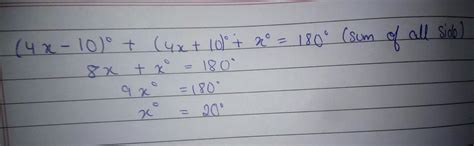 (4x - 10)° + (4x + 10)° + x° = 180° (sum of all side)
8x + x° = 180°
9x° = 180°
x° = 20°